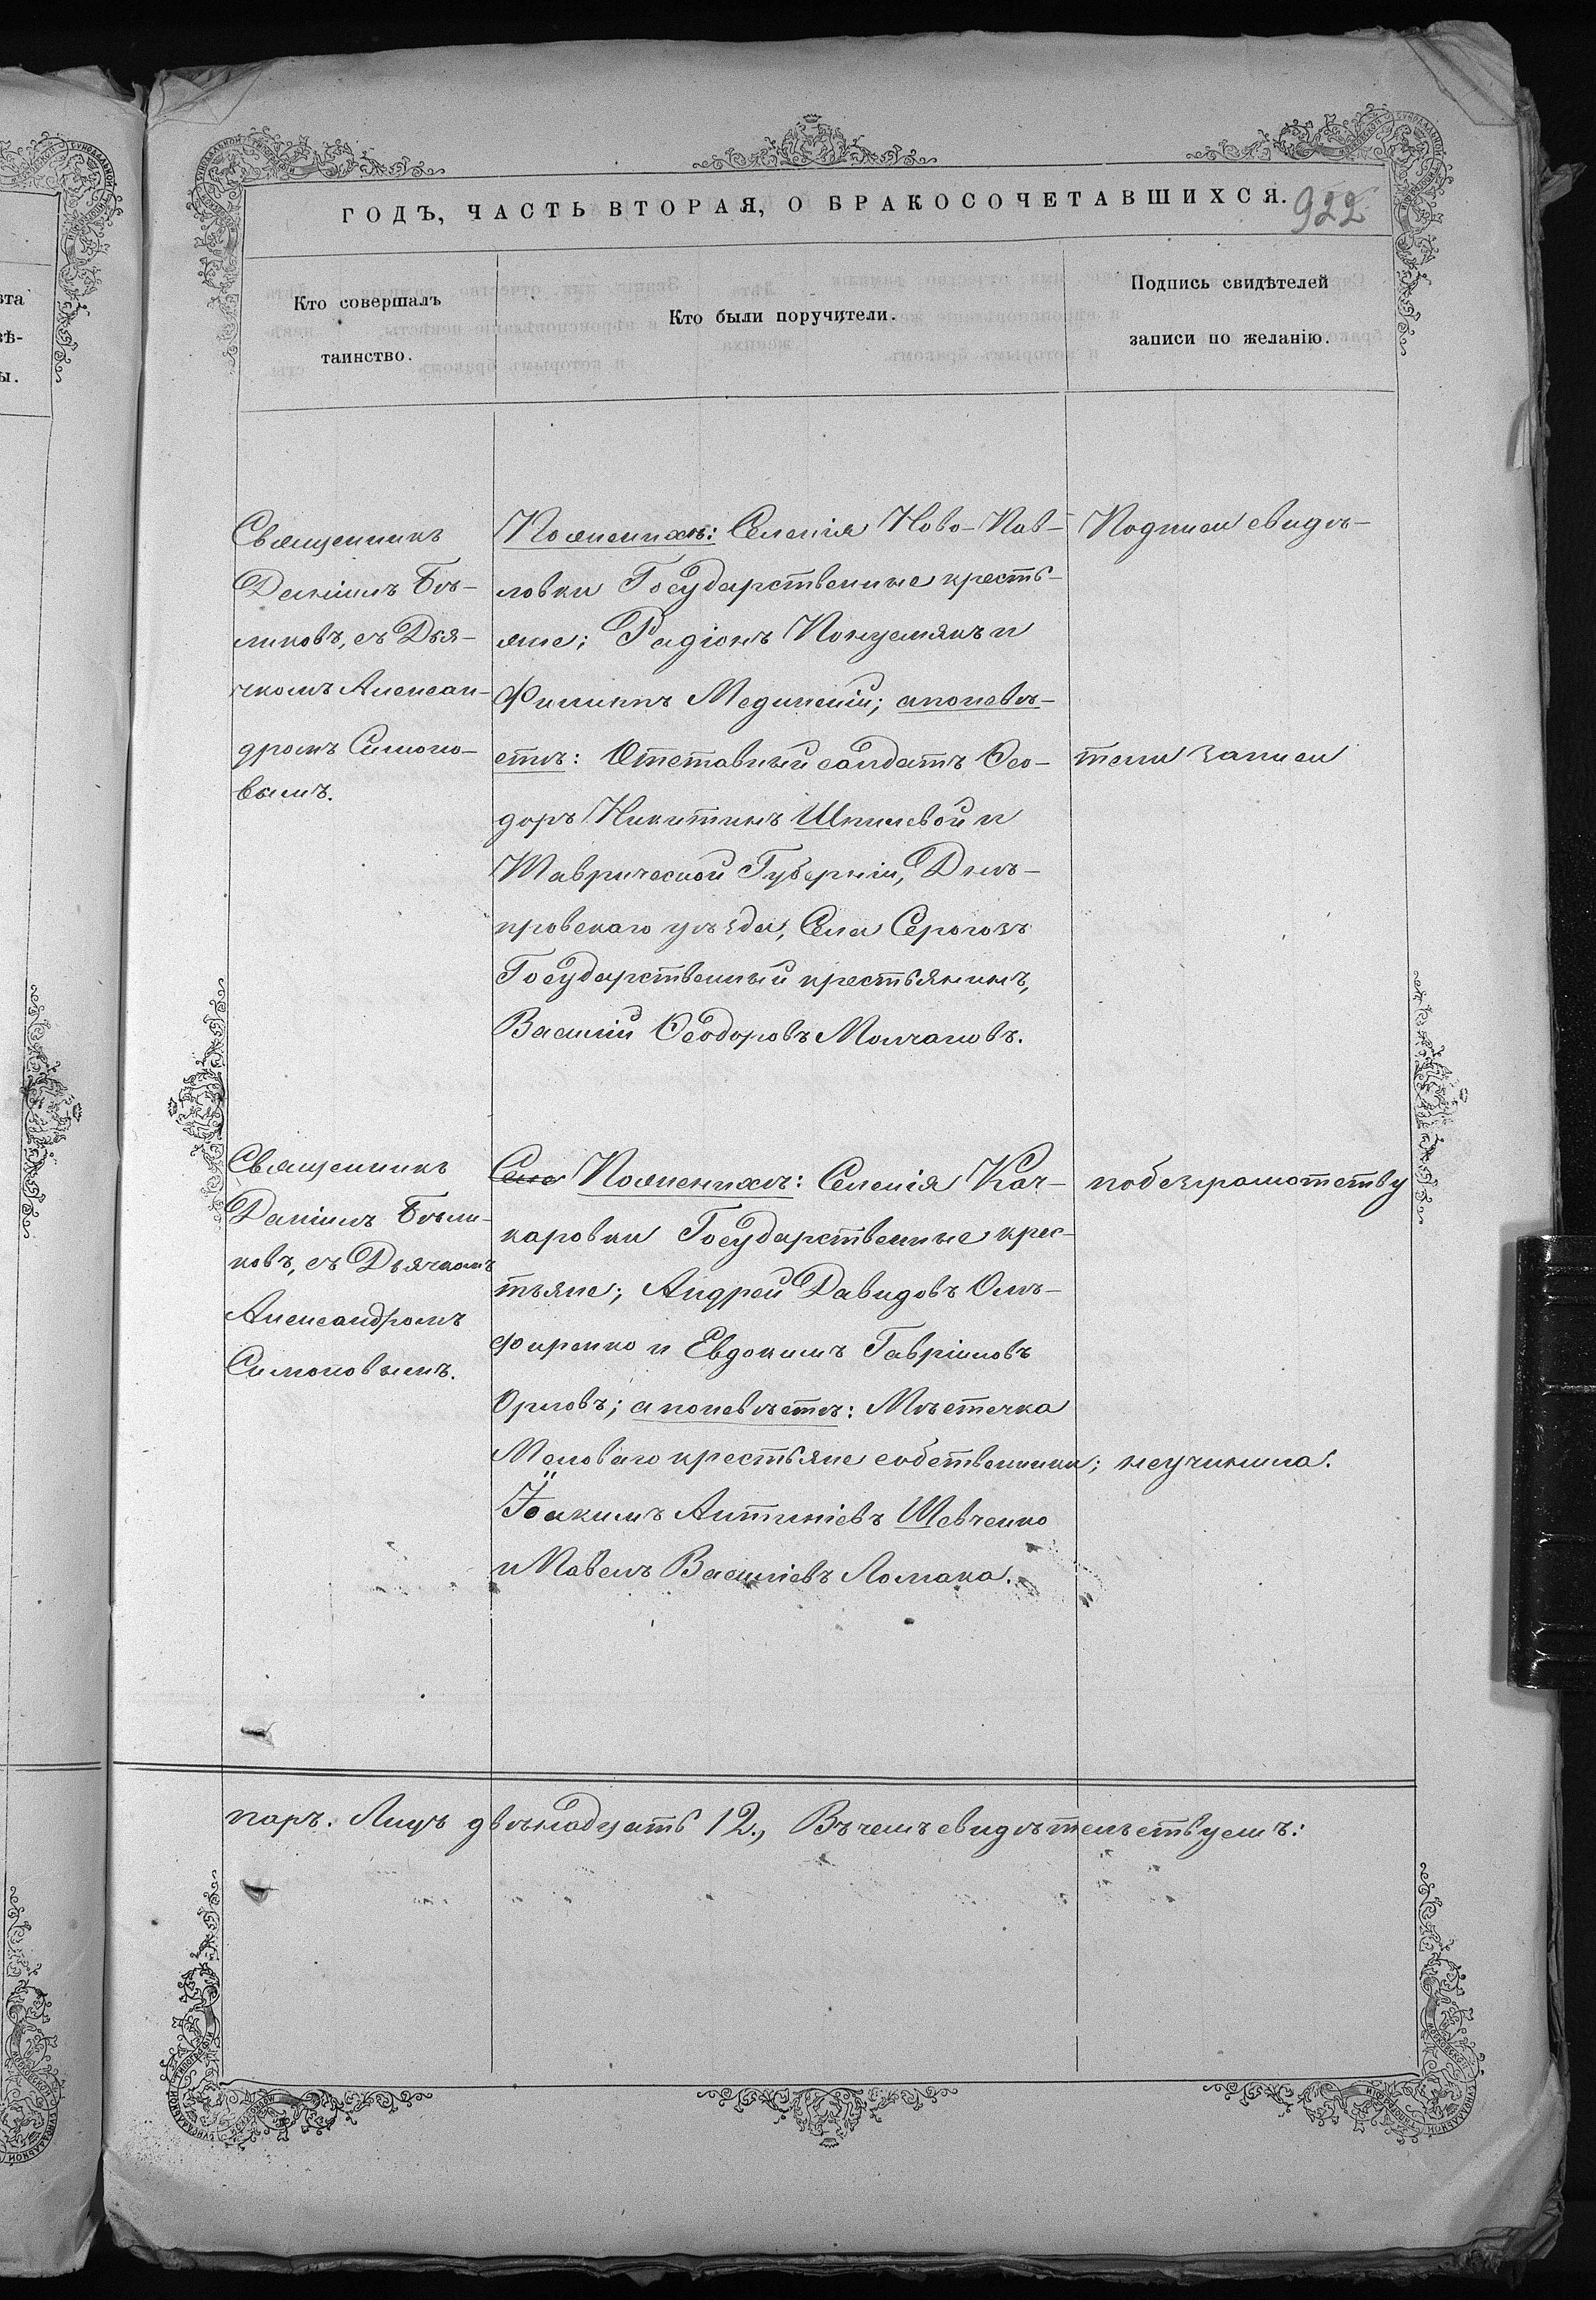 ГОДЪ, ЧАСТЬ ВТОРАЯ, О БРАКОСОЧЕТАВШИХСЯ.
922
Кто совершалъ
таинство.
Кто были поручители.
Подпись свидѣтелей
записи по желанію.
Священникъ
Даніилъ Бѣ-
ликовъ, съ Дья-
чкомъ Алексан-
дромъ Симоно-
вымъ.
По женихѣ: Селенія Ново-Пав-
ловки Государственные кресть-
яне; Радіонъ Понуемякъ и
Филиппъ Мединскій; а по невѣ-
стѣ: Отставный солдатъ Ѳео-
доръ Никитинъ Шпилевой и
Таврической Губерніи, Днѣ-
провскаго уѣзда, Села Серогозъ
Государственный крестьянинъ,
Василій Ѳеодоровъ Молчановъ.
Подписи свидѣ-
тели записи
Священникъ
Даніилъ Бѣли-
ковъ, съ Дьячкомъ
Александромъ
Симоновымъ.
Село По женихѣ: Селенія Кач-
каровки Государственные крес-
тьяне; Андрей Давидовъ Олъ-
фиренко и Евдокимъ Гавріиловъ
Орловъ; а по невѣстѣ: Мѣстечка
Меловаго крестьяне собственники;
Іоакимъ Антиніевъ Шевченко
и Павелъ Василіевъ Ломака.
по безграмотству
неучинила.
паръ. Лицъ двѣнадцать 12., Въ чемъ свидѣтельствуемъ: